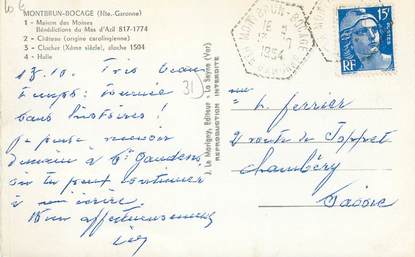 MONTBRUN-BOCAGE (Hte.-Garonne)
1 - Maison des Moines
Bénédictins du Mas d'Azil 817-1774
2 - Château (origine carolingienne)
3 - Clocher (Xème siècle), cloche 1504
4 - Halle
13.10. Très beau
temps: tournée
sans histoires!
Je pense recevoir
demain à St Gaudens
où tu peux continuer
à m'écrire.
Bien affectueusement
31
J. Le Marigny, Editeur - La Seyne (Var)
REPRODUCTION INTERDITE
MONTBRUN-BOCAGE
1954
15F
RF
ferrier
2 route de Joppet
Chambéry
Savoie